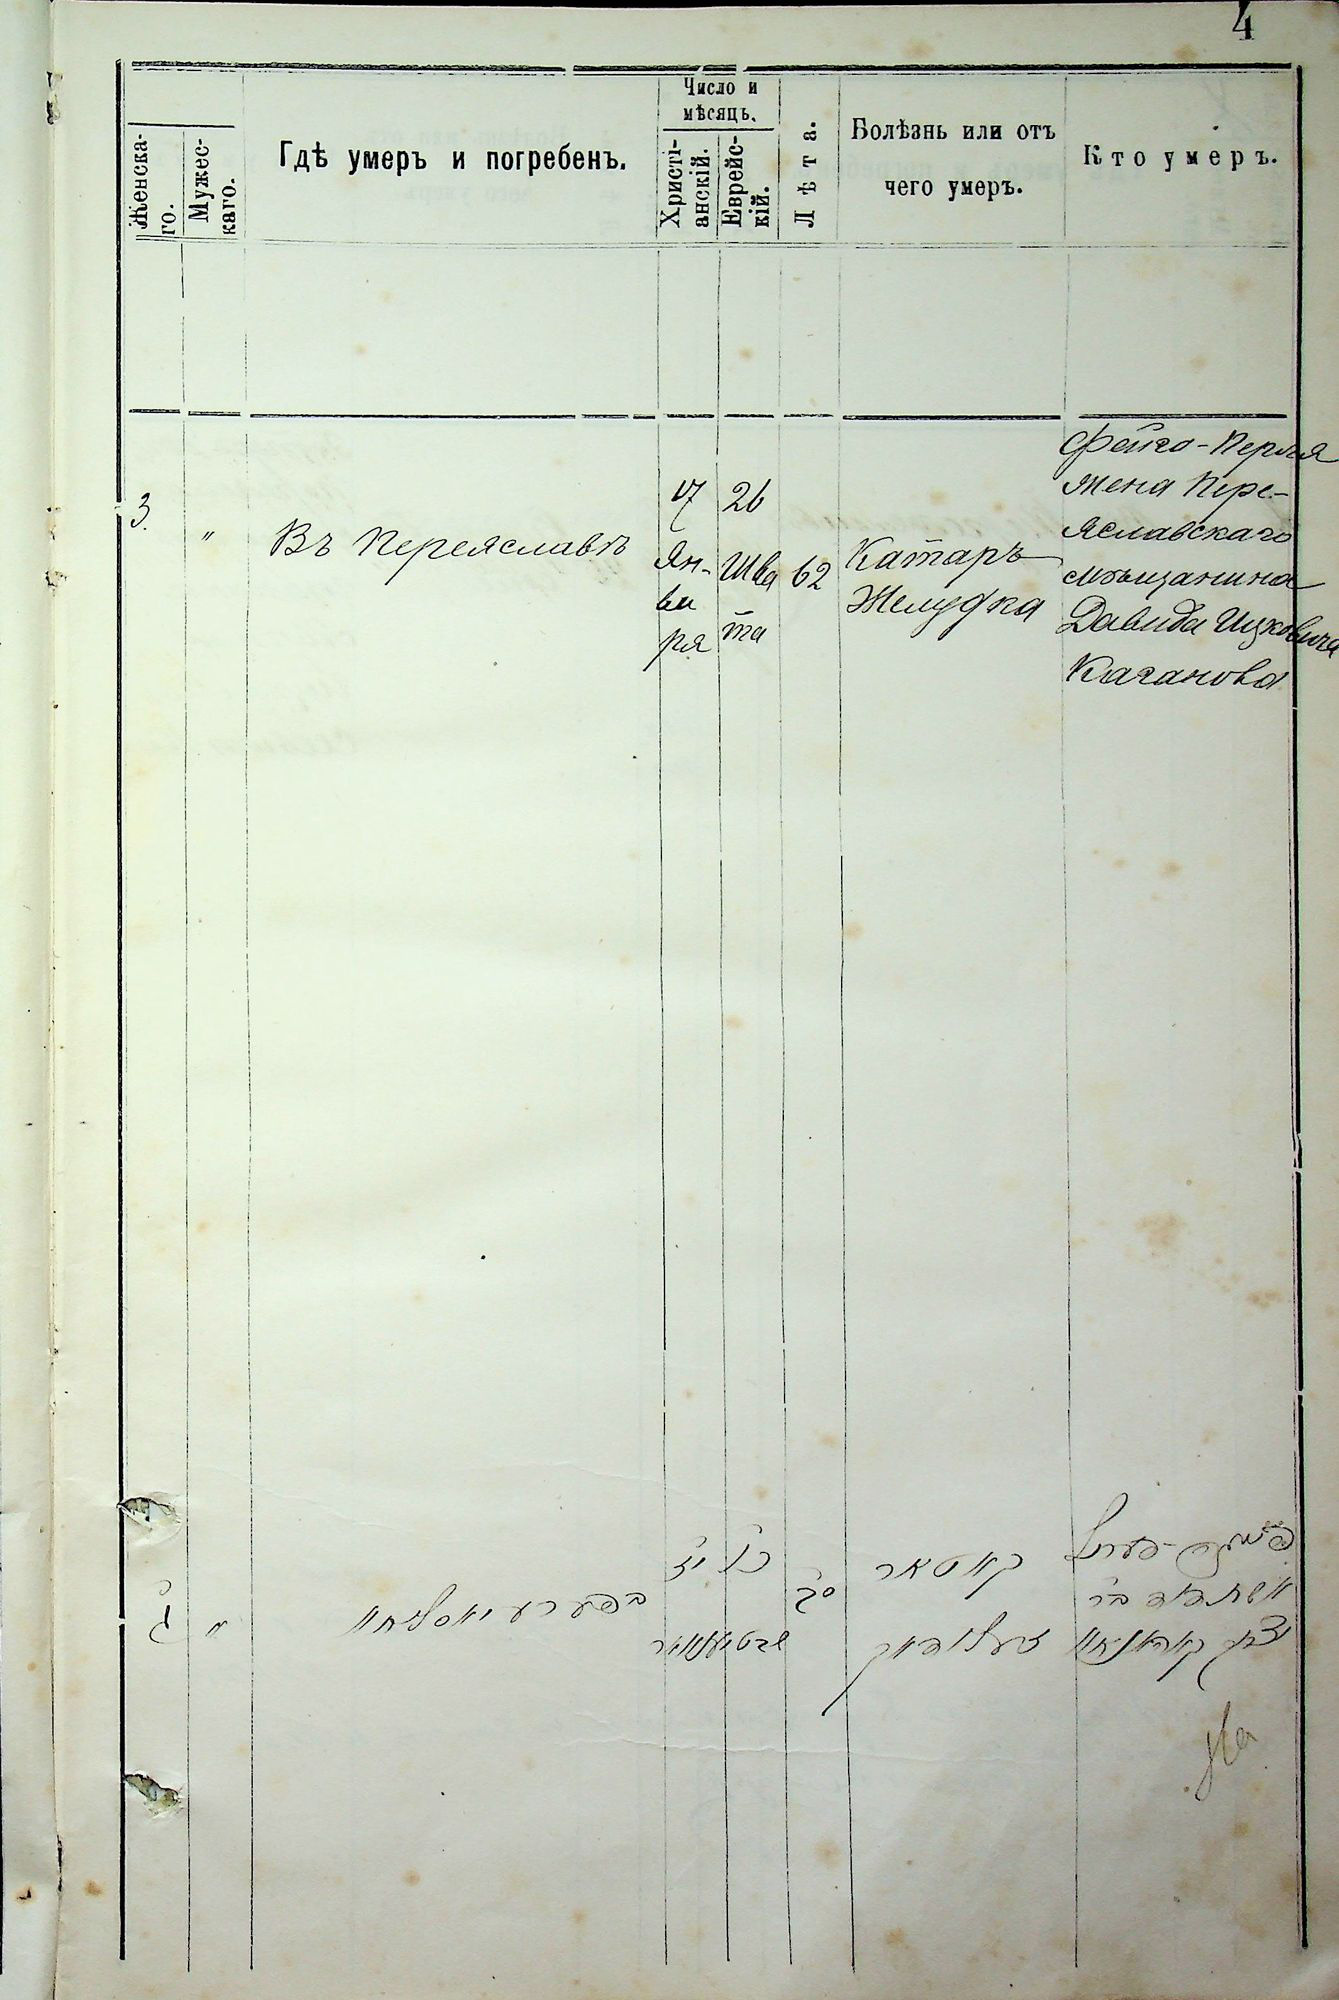 4
Женска-
го.
Мужес-
каго.
Гдѣ умеръ и погребенъ.
Число и
мѣсяцъ.
Христі-
анскій.
Еврейс-
кій.
Лѣта.
Болѣзнь или отъ
чего умеръ.
Кто умеръ.
3.
"
Въ Переяславѣ
17
Ян-
ва
ря
26
Шва
та
62
Катаръ
Желудка
Фейга-Перля
жена Пере-
яславскаго
мѣщанина
Давида Ицковича
Каганова
ג
"
יז
כו
סב
קאטאר
פייגע-פערל
אשת דוד בר